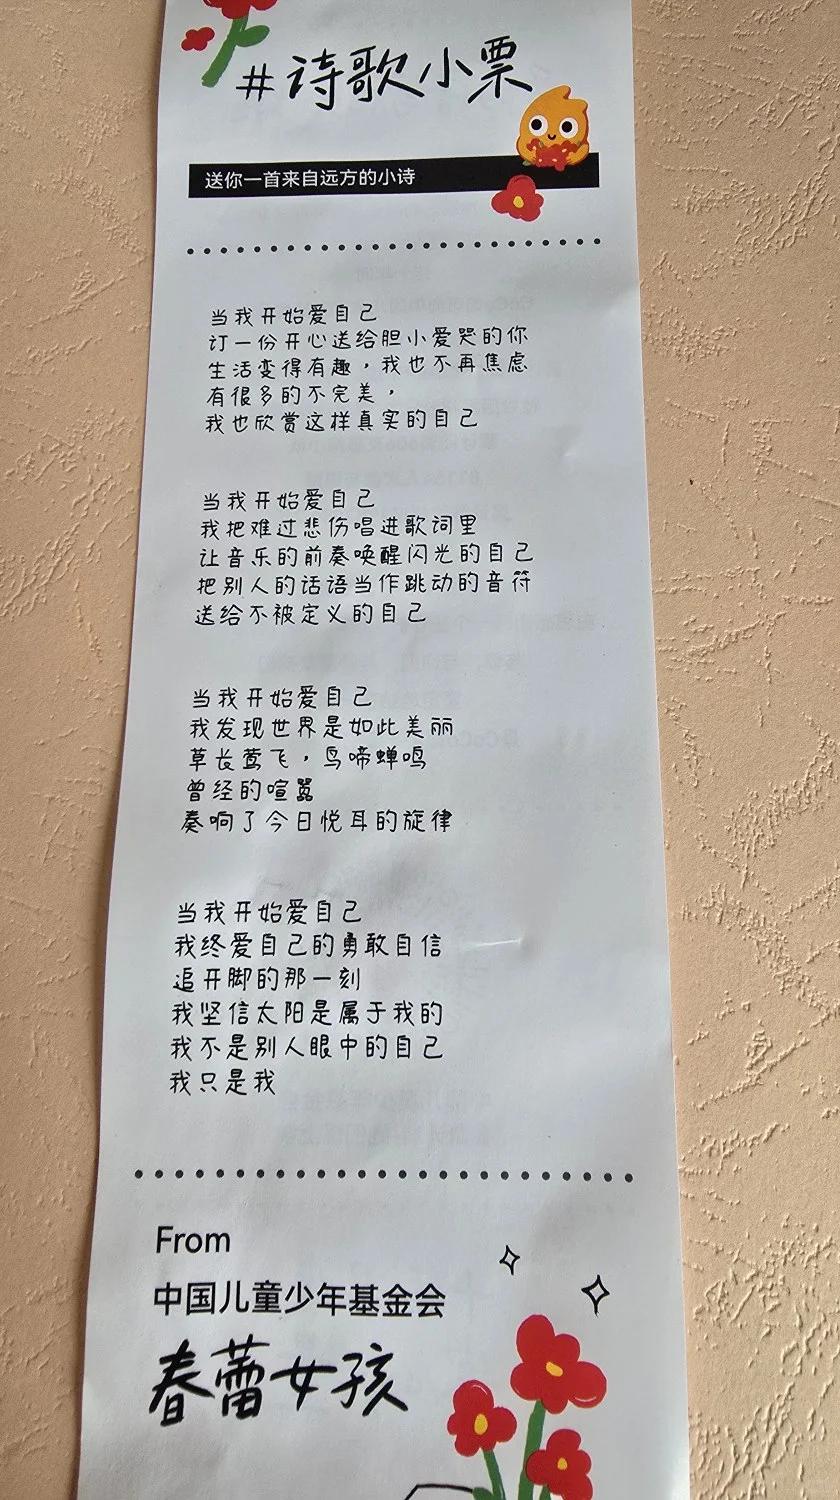 #诗歌小票
送你一首来自远方的小诗
当我开始爱自己
订一份开心送给胆小爱哭的你
生活变得有趣，我也不再焦虑
有很多的不完美，
我也欣赏这样真实的自己
当我开始爱自己
我把难过悲伤唱进歌词里
让音乐的前奏唤醒闪光的自己
把别人的话语当作跳动的音符
送给不被定义的自己
当我开始爱自己
我发现世界是如此美丽
草长莺飞，鸟啼蝉鸣
曾经的喧嚣
奏响了今日悦耳的旋律
当我开始爱自己
我终爱自己的勇敢自信
追开脚的那一刻
我坚信太阳是属于我的
我不是别人眼中的自己
我只是我
From
中国儿童少年基金会
春蕾女孩